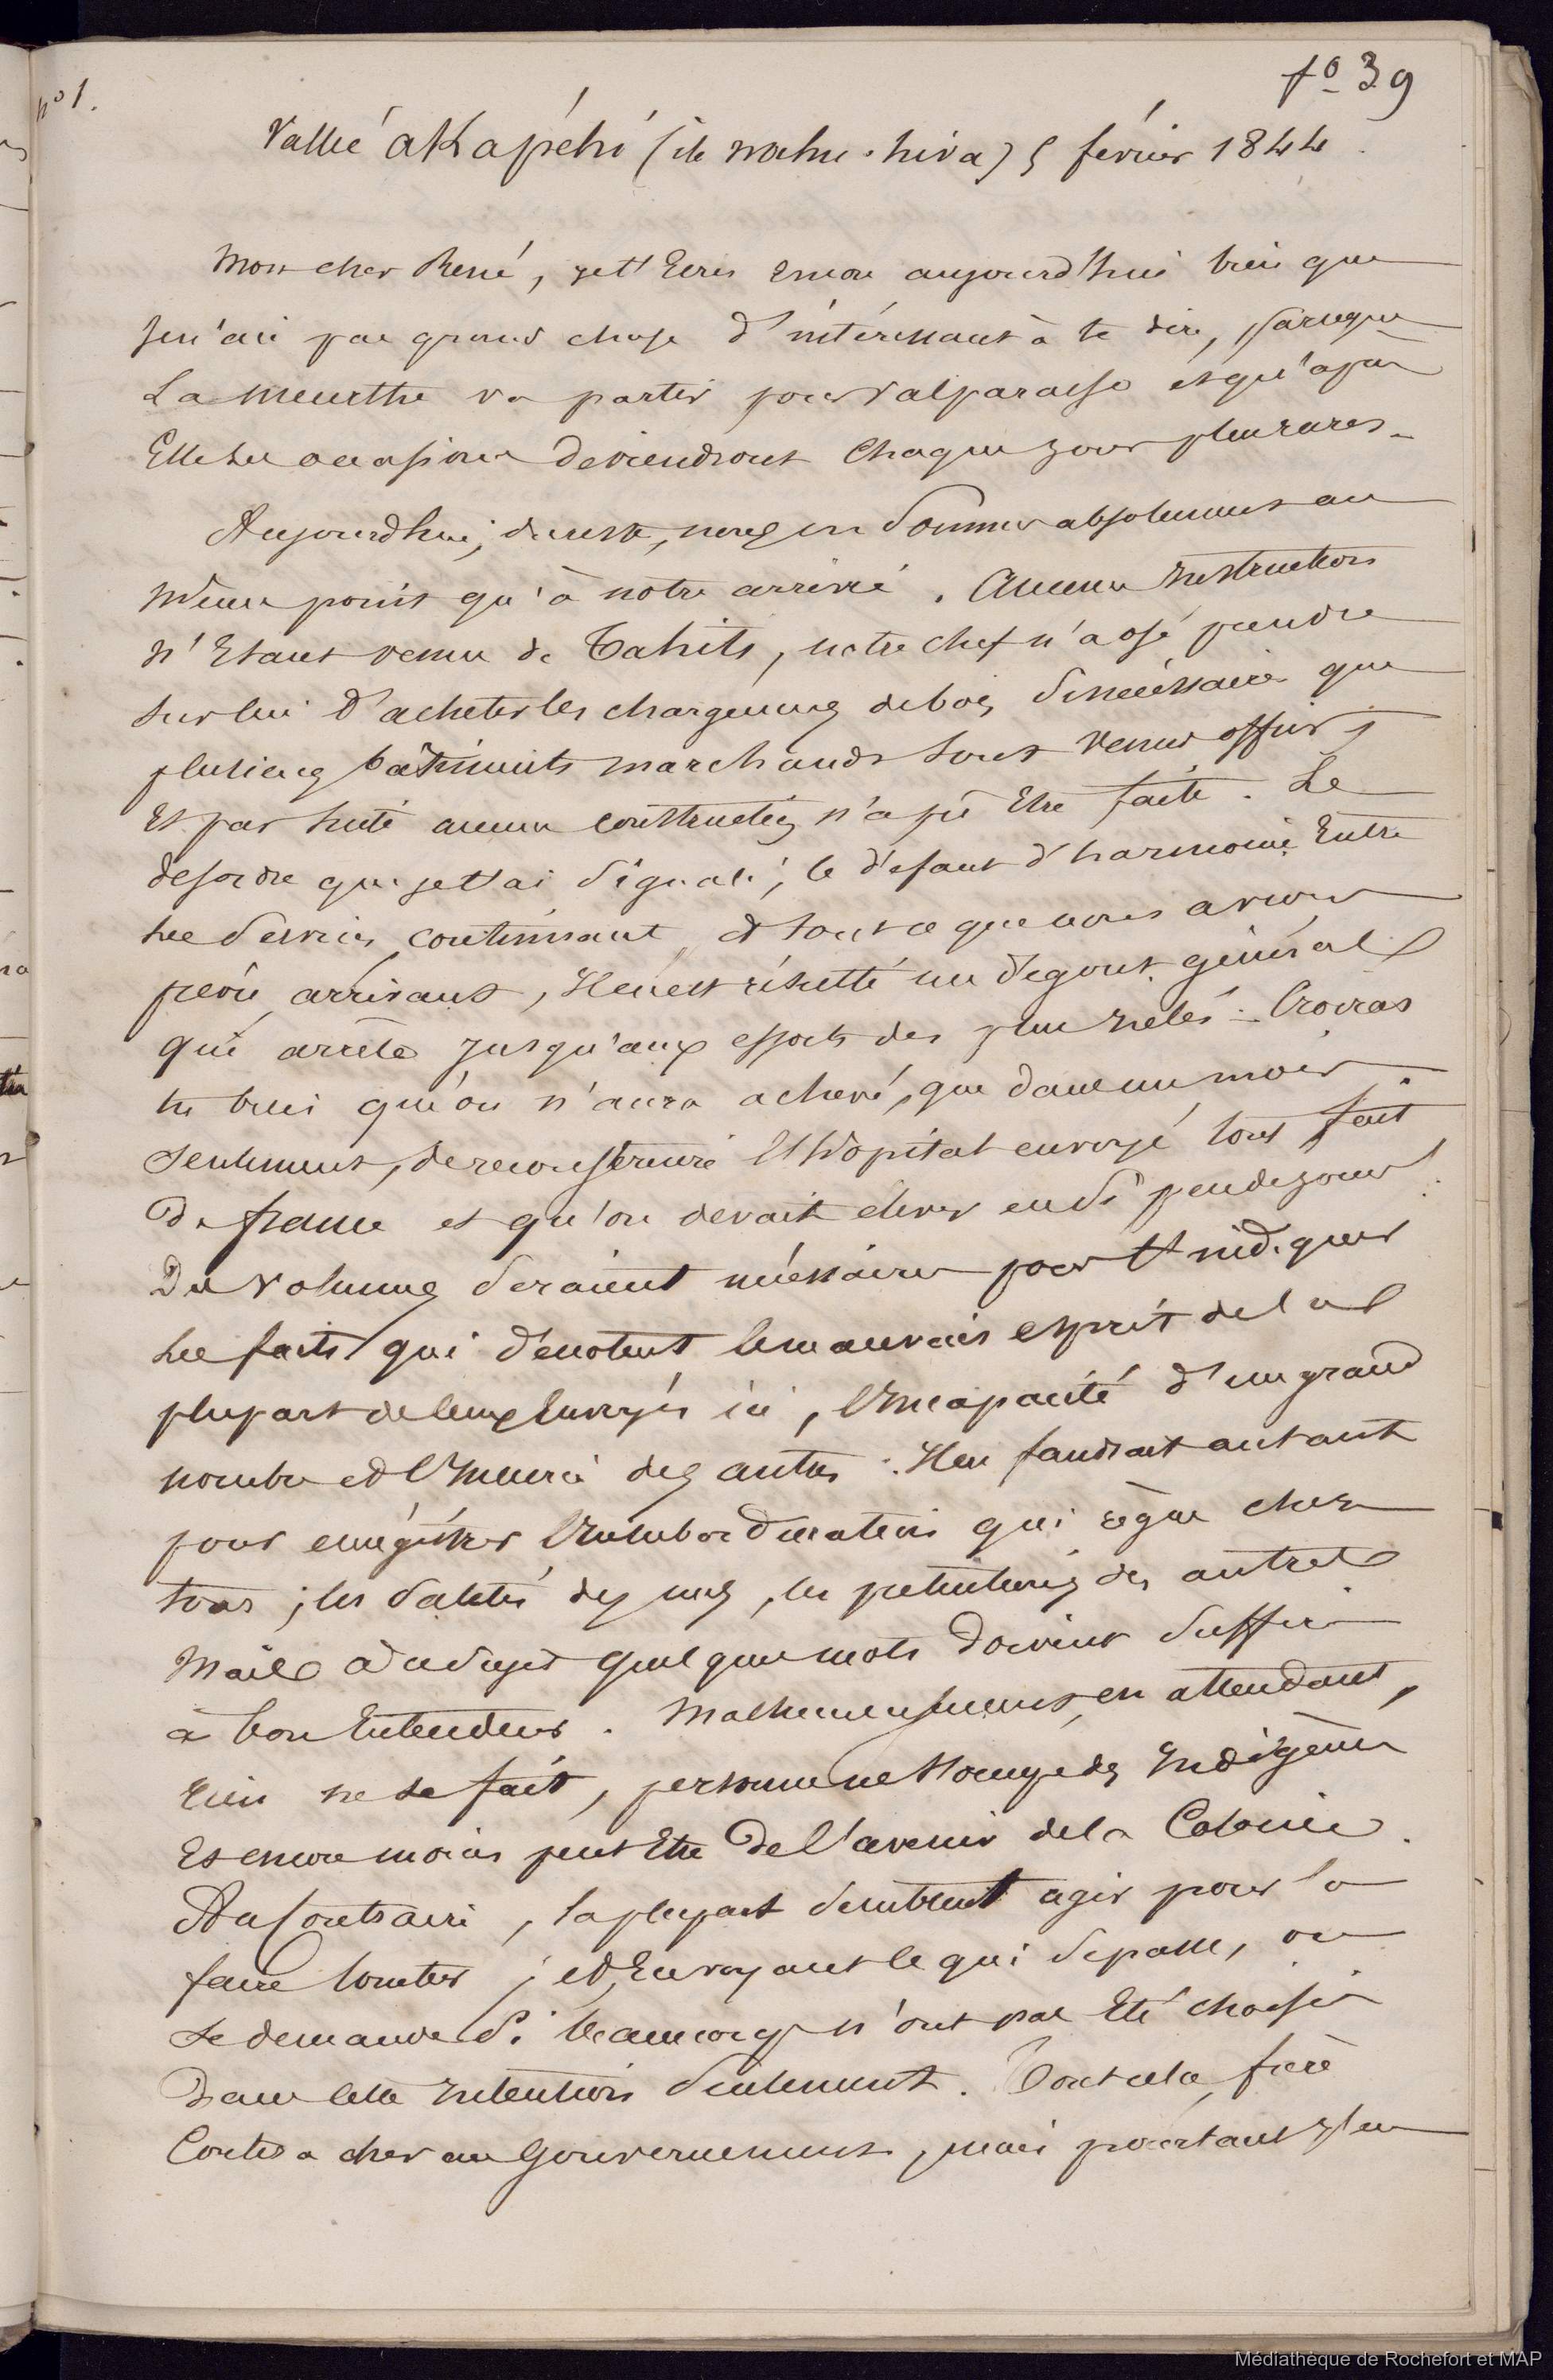 nº 1.
fº 39
Vallée aKapéhi (île noahu-hiva) 5 février 1844.
Mon cher René, je t'Ecris Encore aujourd'hui bien que
Je n'ai pas grand chose d'intéressant à te dire, parceque
La Meurthe va partir pour Valparaiso et qu'après
Elle les occasions deviendront Chaque jour plus rares.
Aujourd'hui, du reste, nous en Sommes absolument au
même point qu'à notre arrivée. Aucune Instruction
n'Etant venue de Tahiti, notre chef n'a osé prendre
sur lui d'acheter les chargemens de bois si nécéssaires que
plusieurs bâtiments marchands sont venus offrir;
Et par suite aucune construction n'a pû Etre faite. Le
desordre que je t'ai Signalé, le défaut d'harmonie Entre
les Services continuant et tout ce que nous avions
prévû, arrivant, Il en est résulté un dégout général
qui arrête jusqu'aux efforts des plus zélés. Croiras
tu bien qu'on n'aura achevé, que dans un mois
Seulement, de reconstruire l'hôpital envoyé tout fait
De france et qu'on devait élever en si peu de jours!
Des Volumes Seraient nécéssaires pour t'indiquer
les faits qui dénotent le mauvais esprit de la
plupart de ceux Envoyés ici, l'Incapacité d'un grand
nombre et l'Incurie des autres. Il en faudrait autant
pour enrégistrer l'Insubordination qui règne chez
tous; les saletés des uns, les petitesses des autres
Mais à ce sujet quelques mots doivent Suffire
à bon Entendeur. Malheureusement, en attendant,
Rien ne se fait, personne ne s'occupe des Indigènes
Et encore moins peut Etre de l'avenir de la Colonie.
Au Contraire, la plupart semblent agir pour la
faire tomber; et, En voyant ce qui se passe, on
se demande Si beaucoup n'ont pas Eté choisis
Dans cette Intention Seulement. Tout cela fera
Coutera cher au Gouvernement, mais pourtant s'en
Médiathèque de Rochefort et MAP